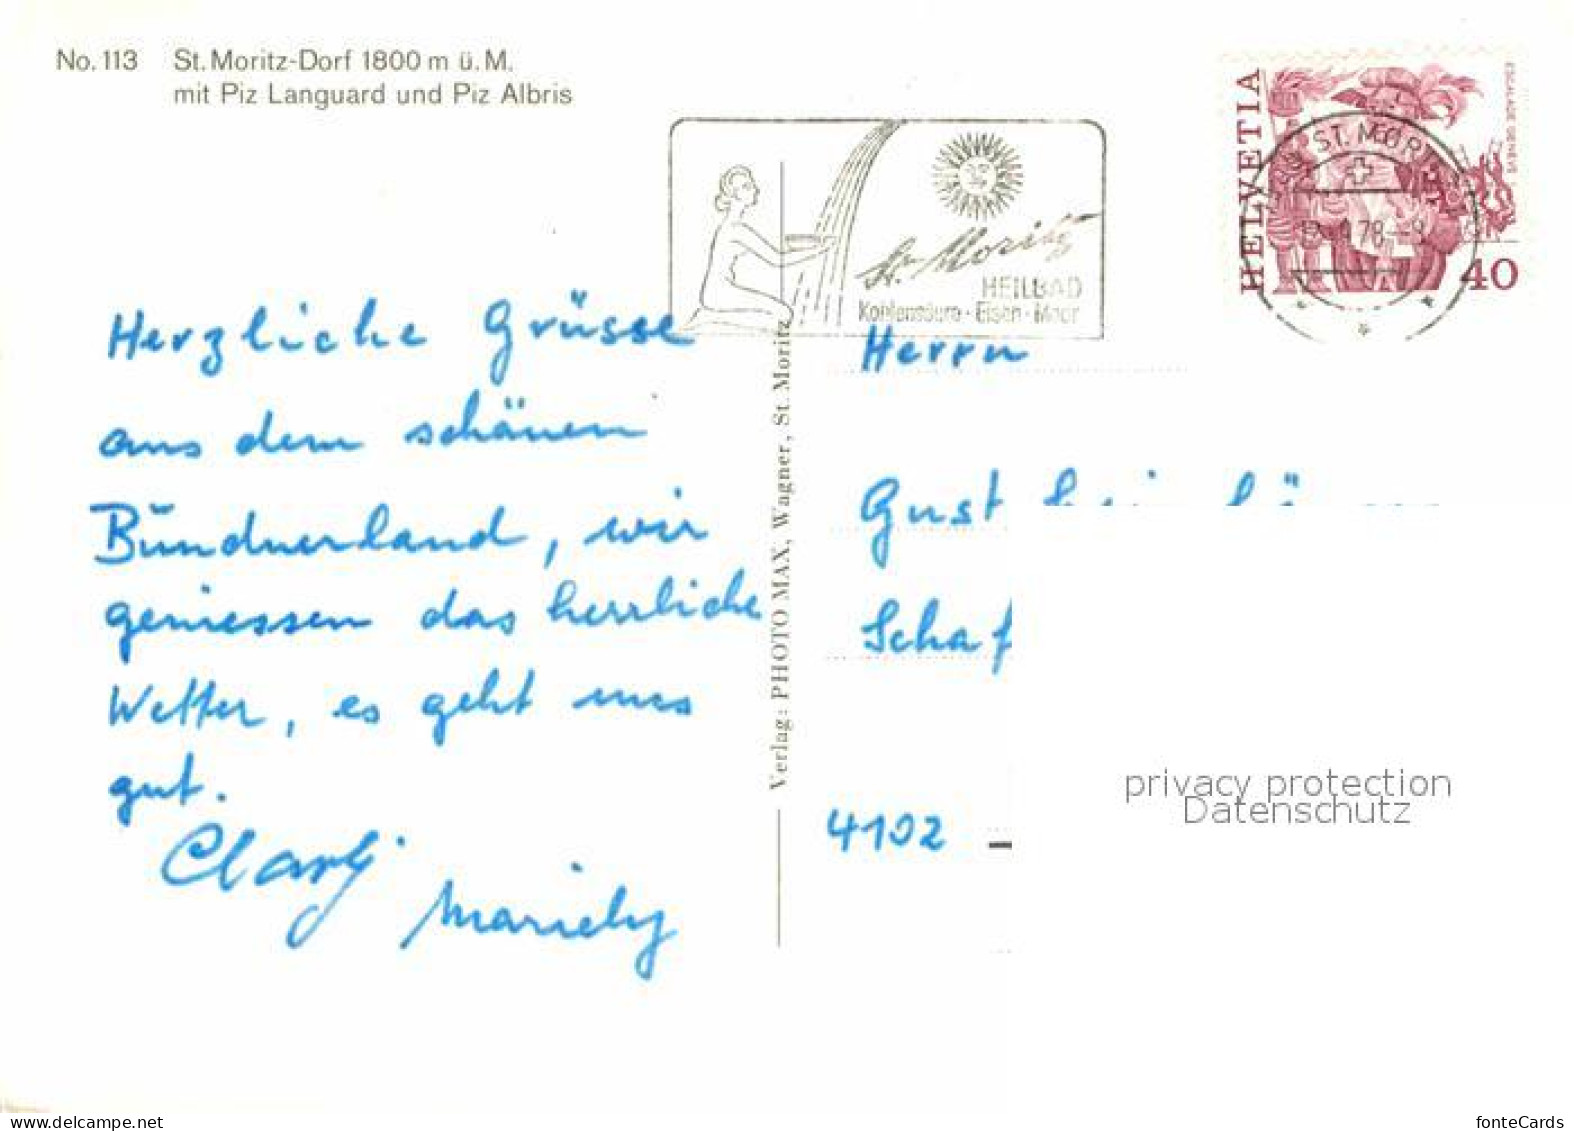 No. 113 St. Moritz-Dorf 1800 m ü. M.
mit Piz Languard und Piz Albris
St. Moritz
HEILBAD
Kohlensäure · Eisen · Moor
HELVETIA
ESCALADE GENÈVE
40
ST. MORITZ
78
Herzliche Grüsse
aus dem schönen
Bündnerland, wir
geniessen das herrliche
Wetter, es geht uns
gut.
Mariely
Verlag: PHOTO MAX, Wagner, St. Moritz
Herrn
Gust
Schaf
4102
privacy protection
Datenschutz
www.delcampe.net
fonteCards